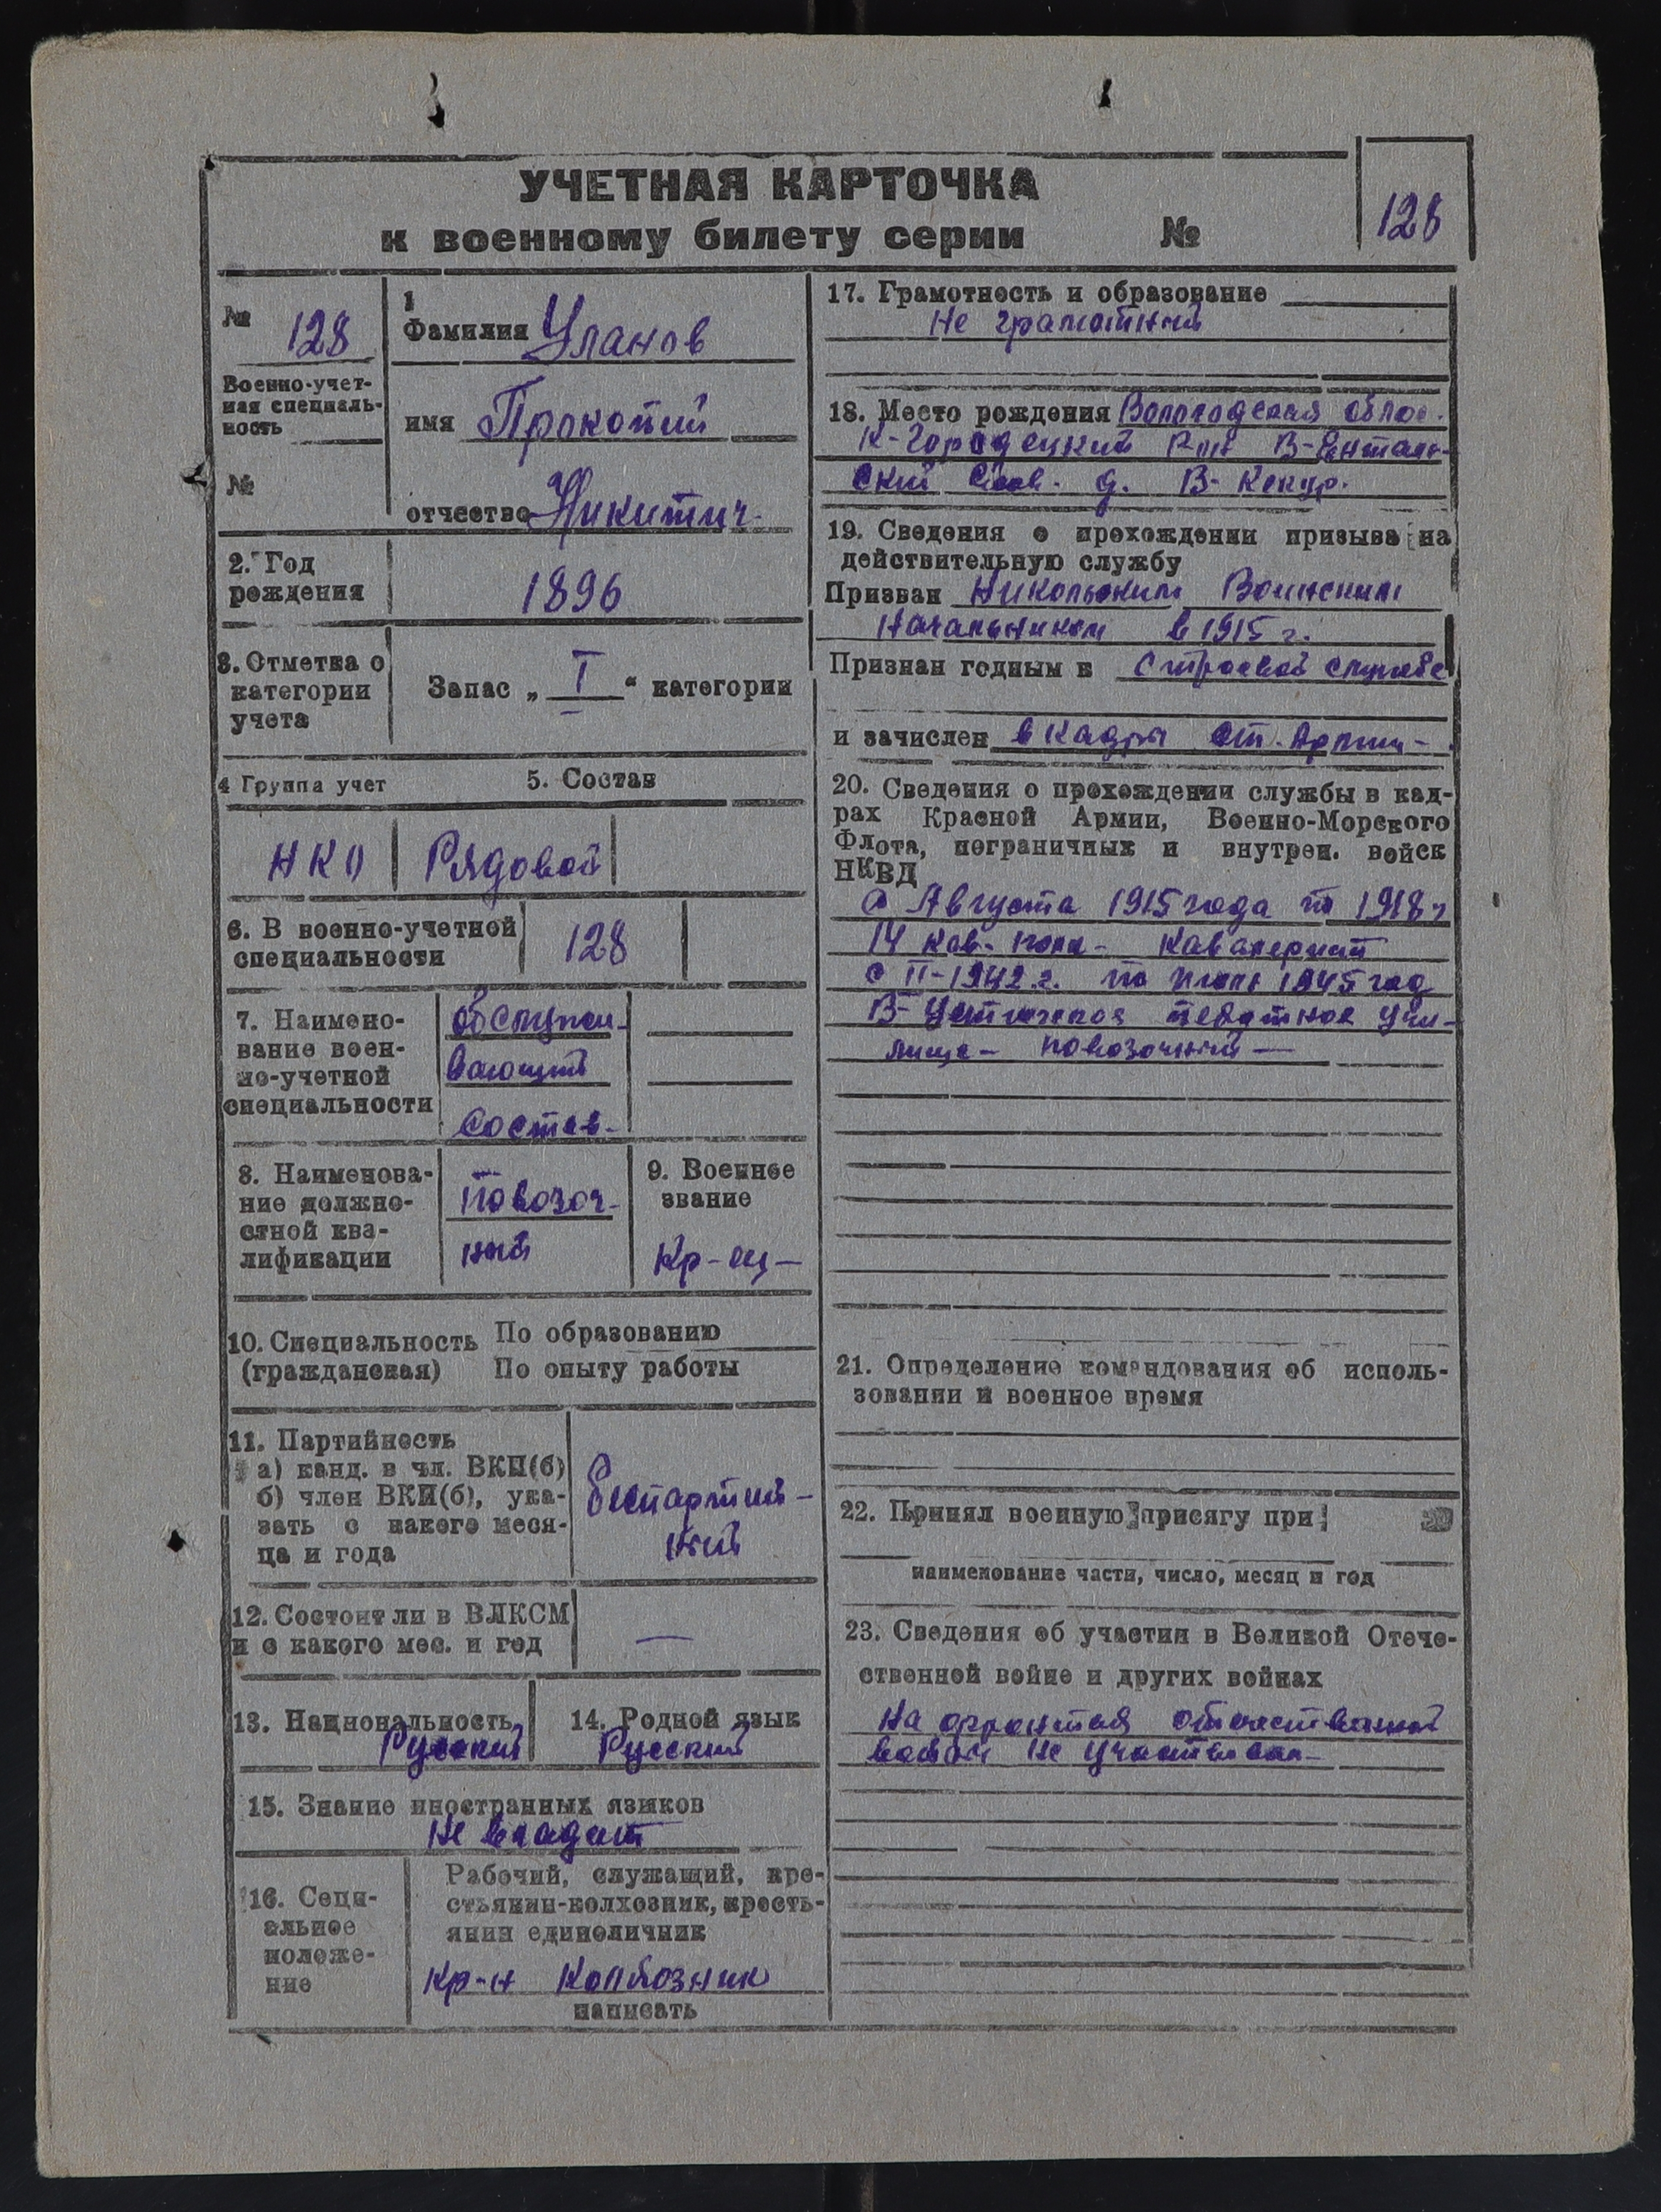 УЧЕТНАЯ КАРТОЧКА
к военному билету серии №
128
№ 128
Военно-учет-
ная специаль-
ность
№
1
Фамилия Уланов
имя Прокопий
отчество Никитич
2. Год
рождения
1896
3. Отметка о
категории
учета
Запас „ I “ категории
4 Группа учет
5. Состав
НКО
Рядовой
6. В военно-учетной
специальности
128
7. Наимено-
вание воен-
но-учетной
специальности
обслужи-
вающий
Состав-
8. Наименова-
ние должно-
стной ква-
лификации
Повозоч-
ный
9. Военное
звание
Кр-ец-
10. Специальность
(гражданская)
По образованию
По опыту работы
11. Партийность
а) канд. в чл. ВКП(б)
б) член ВКП(б), ука-
зать с какого меся-
ца и года
беспартий-
ный
12. Состоит ли в ВЛКСМ
и с какого мес. и год
—
13. Национальность
Русский
14. Родной язык
Русский
15. Знание иностранных языков
Не владеет
16. Соци-
альное
положе-
ние
Рабочий, служащий, кре-
стьянин-колхозник, кресть-
янин единоличник
Кр-н Колхозник
написать
17. Грамотность и образование
Не грамотный
18. Место рождения Вологодская облас.
К-Городецкий Р-он В-Енталь-
ский С/сов. д. В-
19. Сведения о прохождении призыва на
действительную службу
Призван Никольским Воинским
Начальником в 1915 г.
Признан годным к Строевой службе
и зачислен в кадры ст. Армии-
20. Сведения о прохождении службы в кад-
рах Красной Армии, Военно-Морского
Флота, пограничных и внутрен. войск
НКВД
с Августа 1915 года по 1918 г
14 кав. полк- Кавалерист
с II-1942 г. по 1945 год
В-Устюжское пехотное учи-
лище- повозочный —
21. Определение командования об исполь-
зовании в военное время
22. Принял военную присягу при
наименование части, число, месяц и год
23. Сведения об участии в Великой Отече-
ственной войне и других войнах
На фронтах отечественной
войны не участвовал-